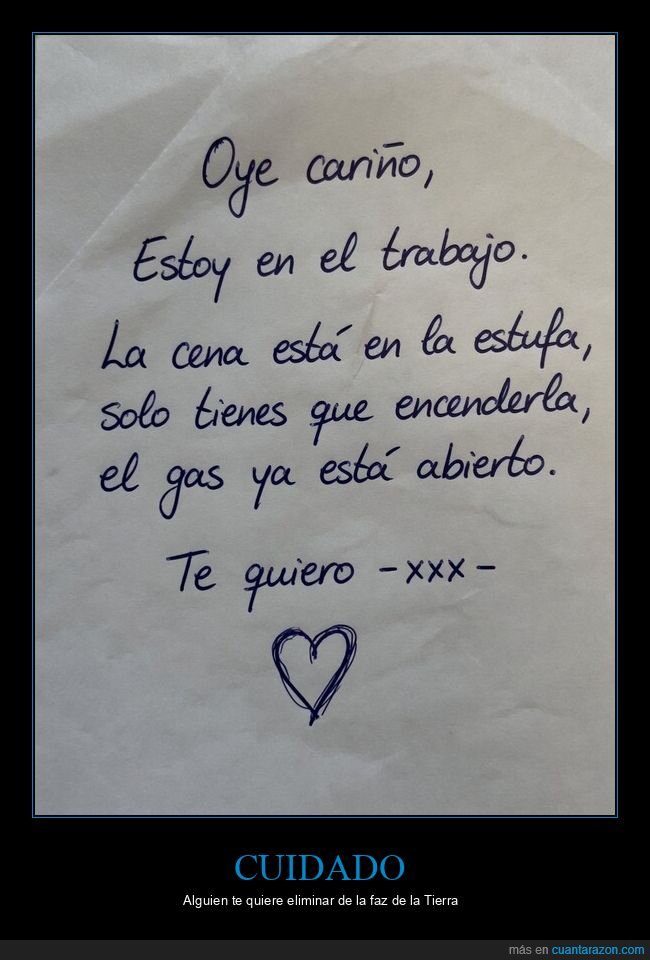 Oye cariño,
Estoy en el trabajo.
La cena está en la estufa,
solo tienes que encenderla,
el gas ya está abierto.
Te quiero -xxx-
CUIDADO
Alguien te quiere eliminar de la faz de la Tierra
más en cuantarazon.com